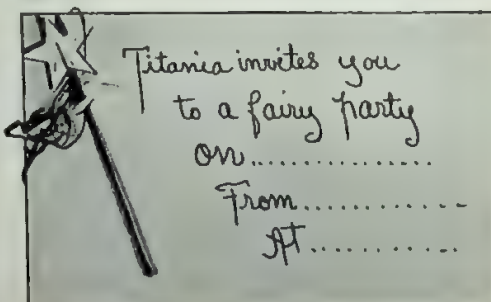 Titania invites you
to a fairy party
on..............
From.............
At............